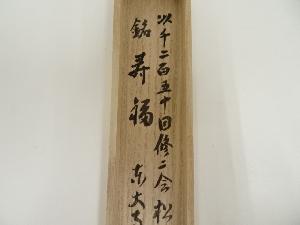 以千二百五十回修二会松
銘 寿福 東大寺